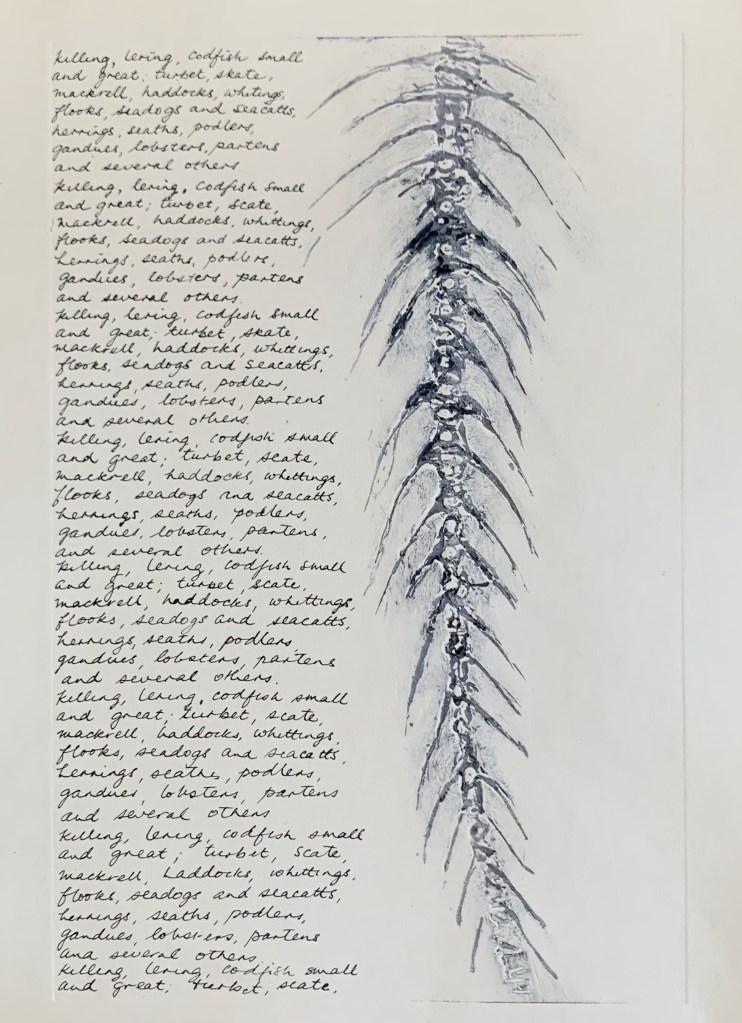 killing, lering, codfish small
and great; turbet, skate,
mackrell, haddocks, whitings,
flooks, seadogs and seacatts,
herrings, seaths, podlers,
gandues, lobsters, partens
and several others
killing, lering, codfish small
and great; turbet, scate,
mackrell, haddocks, whittings,
flooks, seadogs and seacatts,
herrings, seaths, podlers,
gandues, lobsters, partens
and several others.
killing, lering, codfish small
and great; turbet, skate,
mackrell, haddocks, whittings,
flooks, seadogs and seacatts,
herrings, seaths, podlers,
gandues, lobsters, partens
and several others.
killing, lering, codfish small
and great; turbet, scate,
mackrell, haddocks, whittings,
flooks, seadogs and seacatts,
herrings, seaths, podlers,
gandues, lobsters, partens,
and several others.
killing, lering, codfish small
and great; turbet, scate,
mackrell, haddocks, whittings,
flooks, seadogs and seacatts,
herrings, seaths, podlers,
gandues, lobsters, partens
and several others.
killing, lering, codfish small
and great; turbet, scate,
mackrell, haddocks, whittings,
flooks, seadogs and seacatts,
herrings, seaths, podlers,
gandues, lobsters, partens
and several others
killing, lering, codfish small
and great; turbet, scate,
mackrell, haddocks, whittings,
flooks, seadogs and seacatts,
herrings, seaths, podlers,
gandues, lobsters, partens
and several others.
killing, lering, codfish small
and great; turbet, scate,